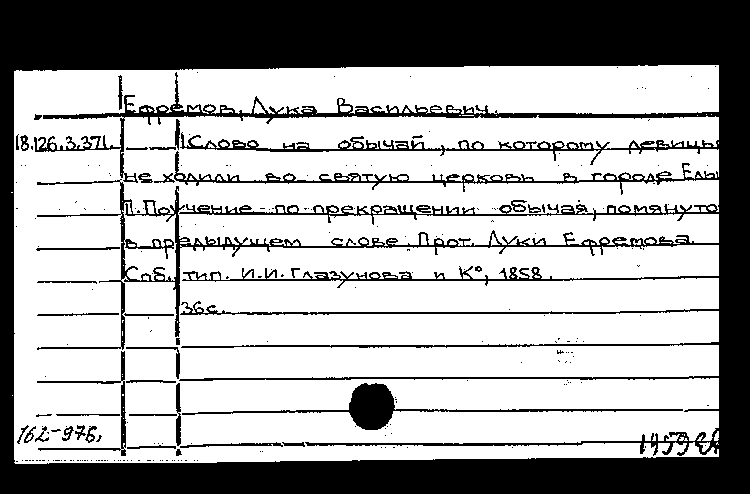 Ефремов, Лука Васильевич.
18.126.3.371. I Слово на обычай, по которому девицы
не ходили во святую церковь в городе Ель
II. Поучение по прекращении обычая, помянуто
в предыдущем слове. Прот. Луки Ефремова.
Спб., тип. И.И. Глазунова и К°, 1858.
36с.
162-976,